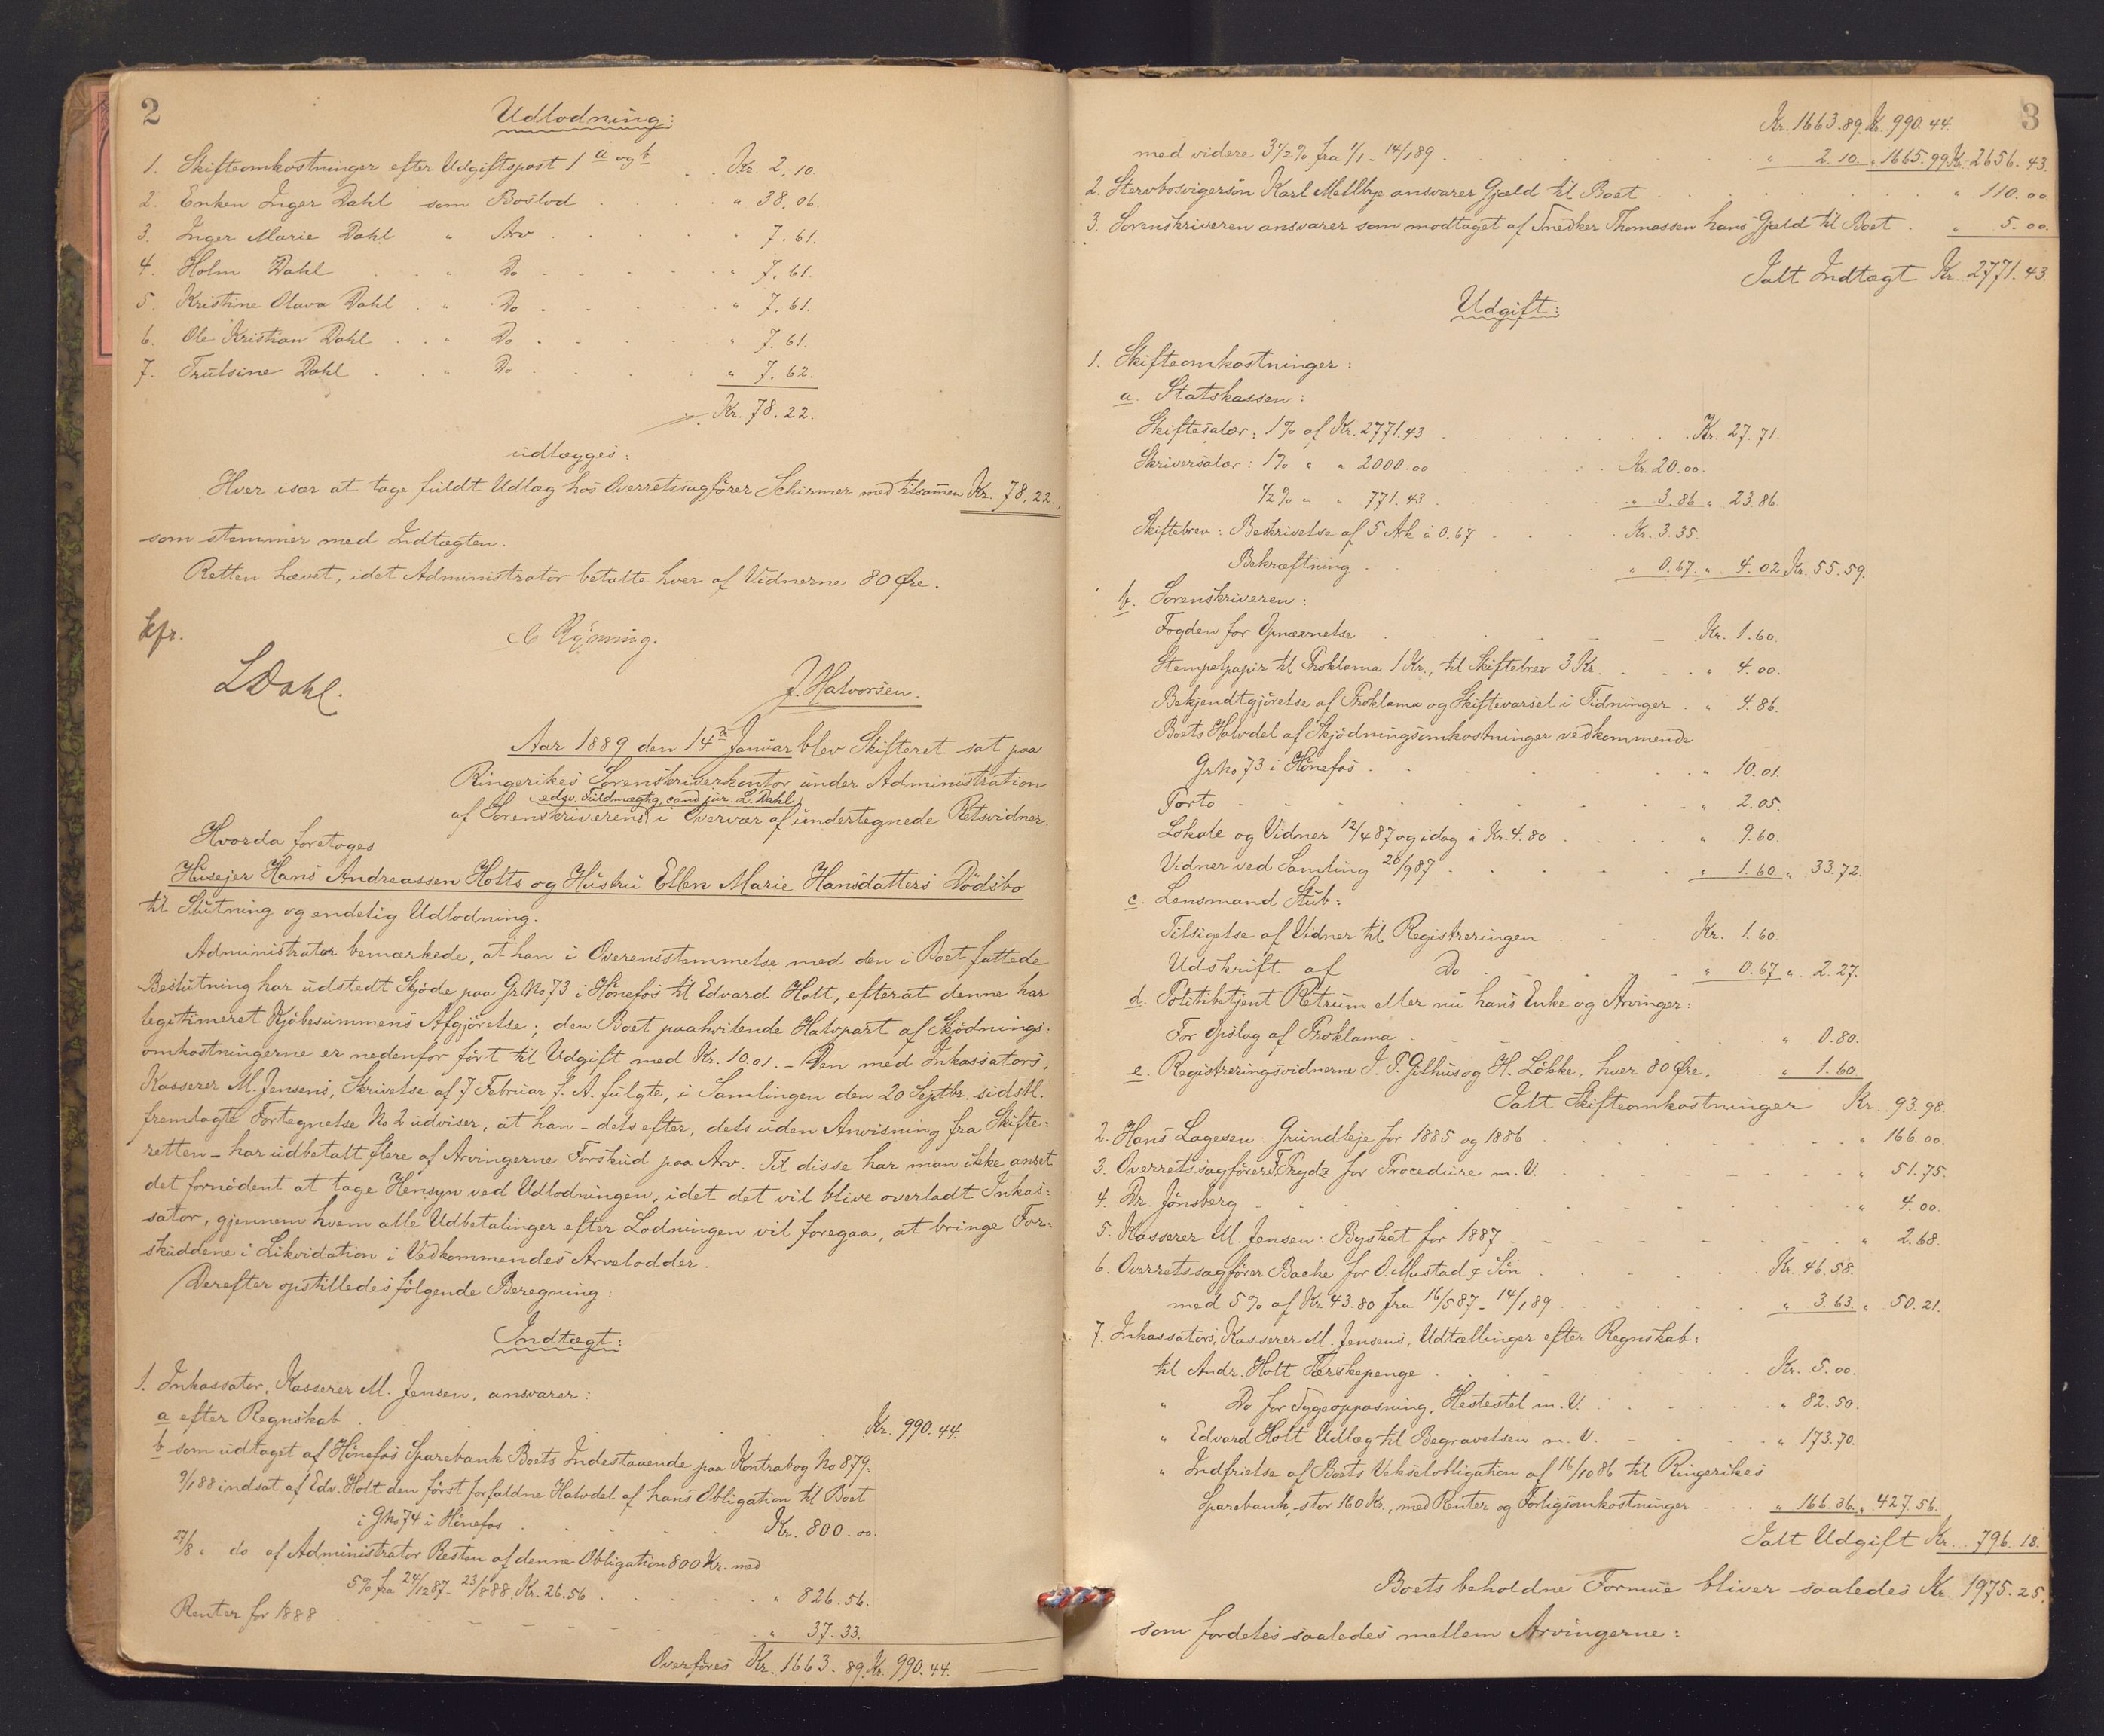 2
Udlodning:
1. Skifteomkostninger efter Udgiftspost 1 a og b . . Kr. 2.10.
2. Enken Inger Dahl som Boslod . . . . " 38.06.
3. Inger Marie Dahl " Arv . . . . " 7.61.
4. Holm Dahl . . " Do . . . . " 7.61.
5. Kristine Olava Dahl . " Do . . . . " 7.61.
6. Ole Kristian Dahl . . " Do . . . . " 7.61.
7. Trulsine Dahl . . " Do . . . . " 7.62.
Kr. 78.22.
udlægges:
Hver især at tage fuldt Udlæg hos Overretssagfører Schirmer med tilsammen Kr. 78.22,
som stemmer med Indtægten.
Retten hævet, idet Administrator betalte hver af Vidnerne 80 Øre.
kfr.
Rynning.
LDahl.
J. Halvorsen.
Aar 1889 den 14de Januar blev Skifteret sat paa
Ringerikes Sorenskriverkontor under Administration
edsv. Fuldmægtig, cand jur. L. Dahl,
af Sorenskriverens i Overvær af undertegnede Retsvidner.
Hvorda foretoges
Husejer Hans Andreassen Holts og Hustru Ellen Marie Hansdatters Dödsbo
til Slutning og endelig Udlodning.
Administrator bemærkede, at han i Overensstemmelse med den i Boet fattede
Beslutning har udstedt Skjöde paa Gr. No 73 i Hönefos til Edvard Holt, efterat denne har
legitimeret Kjöbesummens Afgjörelse; den Boet paahvilende Halvpart af Skjödnings-
omkostningerne er nedenfor fört til Udgift med Kr. 10.01. - Den med Inkassators,
Kasserer M. Jensens, Skrivelse af 7 Februar f. A. fulgte, i Samlingen den 20 Septbr. sidstl.
fremlagte Fortegnelse No 2 udviser, at han - dels efter, dels uden Anvisning fra Skifte-
retten - har udbetalt flere af Arvingerne Forskud paa Arv. Til disse har man ikke anset
det fornödent at tage Hensyn ved Udlodningen, idet det vil blive overladt Inkas-
sator, gjennem hvem alle Udbetalinger efter Lodningen vil foregaa, at bringe For-
skuddene i Likvidation i Vedkommendes Arvelodder.
Derefter opstilledes fölgende Beregning:
Indtægt:
1. Inkassator, Kasserer M. Jensen, ansvarer:
a efter Regnskab . . . . . . Kr. 990.44.
b som udtaget af Hönefos Sparebank Boets Indestaaende paa Kontrabog No 879:
9/1 88 indsat af Edv. Holt den först forfaldne Halvdel af hans Obligation til Boet
i GNo 74 i Hönefos . . . . . Kr. 800.00.
27/8 " do af Administrator Resten af denne Obligation 800 Kr. med
5% fra 24/12 87 - 23/8 88, Kr. 26.56 . . . . " 826.56.
Renter for 1888 . . . . . . " 37.33.
Overföres Kr. 1663.89. Kr. 990.44.
3
Kr. 1663.89. Kr. 990.44.
med videre 3 1/2% fra 1/1 - 14/1 89 . . . . " 2.10 " 1665.99 Kr. 2656.43.
2. Stervbosvigersön Karl Mellbye ansvarer Gjæld til Boet . . . . " 110.00.
3. Sorenskriveren ansvarer som modtaget af Snedker Thomassen hans Gjæld til Boet . " 5.00.
Ialt Indtægt Kr. 2771.43.
Udgift:
1. Skifteomkostninger:
a. Statskassen:
Skiftesalær: 1% af Kr. 2771.43 . . . . . Kr. 27.71.
Skriversalær: 1% " " 2000.00 . . . . Kr. 20.00.
1/2% " " 771.43 . . . . " 3.86 " 23.86.
Skiftebrev: Beskrivelse af 5 Ark à 0.67 . . . . Kr. 3.35.
Bekræftning . . . . . " 0.67. " 4.02 Kr. 55.59.
b. Sorenskriveren:
Fogden for Opnævnelse . . . . Kr. 1.60.
Stempelpapir til Proklama 1 Kr., til Skiftebrev 3 Kr. . . . " 4.00.
Bekjendtgjörelse af Proklama og Skiftevarsel i Tidninger . " 4.86.
Boets Halvdel af Skjödningsomkostninger vedkommende
Gr No 73 i Hönefos . . . . . " 10.01.
Porto . . . . . . " 2.05.
Lokale og Vidner 12/4 87 og idag à Kr. 4.80 . . . . " 9.60.
Vidner ved Samling 26/9 87 . . . . . " 1.60 " 33.72.
c. Lensmand Stub:
Tilsigelse af Vidner til Registreringen . . . Kr. 1.60.
Udskrift af Do . . . . " 0.67 " 2.27.
d. Politibetjent Retrum eller nu hans Enke og Arvinger:
For Opslag af Proklama . . . . . " 0.80.
e. Registreringsvidnerne J. P. Gilhus og H. Löbke, hver 80 Øre. . " 1.60
Ialt Skifteomkostninger Kr. 93.98.
2. Hans Lagesen: Grundleje for 1885 og 1886 . . . . " 166.00.
3. Overretssagförer F. Trydz for Procedure m. V. . . . " 51.75.
4. Dr. Jönsberg . . . . . . " 4.00.
5. Kasserer M. Jensen: Byskat for 1887 . . . . " 2.68.
6. Overretssagförer Bache for O. Mustad & Sön . . . . Kr. 46.58.
med 5% af Kr. 43.80 fra 16/5 87 - 14/1 89 . . . " 3.63. " 50.21.
7. Inkassators, Kasserer M. Jensens, Udtællinger efter Regnskab:
til Andr. Holt Tærskepenge . . . . Kr. 5.00.
" Do for Sygeopposning, Hestestel m. V. . . . " 82.50.
" Edvard Holt Udlæg til Begravelsen m. V. . . . " 173.70.
" Indfrielse af Boets Vekselobligation af 16/10 86 til Ringerikes
Sparebank, stor 160 Kr., med Renter og Forligsomkostninger . . " 166.36. " 427.56.
Ialt Udgift Kr. 796.18.
Boets beholdne Formue bliver saaledes Kr. 1975.25,
som fordeles saaledes mellem Arvingerne: